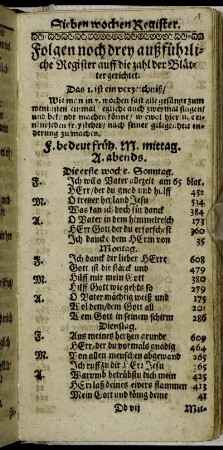 1
Sieben wochen Register.
Folgen noch drey außführli-
che Register auff die zahl der Blät-
ter gerichtet.
Das 1. ist ein verzeichniß/
Wie man in 7. wochen fast alle gesänge zum
wenigsten einmal etliche auch zweymal singen/
F. bedeut früh. M. mittag.
A. abends.
Die erste woche. Sonntag.
F. Ich wil o Vater allezeit am 65 blat.
HErr/der du gnad und hülff 452
M. O treuer heyland Jesu 534
Was kan ich doch für danck 384
A. O Vater in dem himmelreich 173
HErr Gott der du erforschest 360
Ich dancke dem HErrn von 35
Montag.
F. Ich danck dir lieber HErre 608
Gott ist die stärck und 479
M. Hilff mir mein Gott 380
Hilff Gott wie geht es so 279
A. O Vater mächtig weiß und 175
Wol dem/dem Gott all 201
Wem Gott in seinem schirm 286
Dienstag.
F. Aus meines hertzen grunde 609
HErr/der du vormals gnädig 464
M. Von allen menschen abgewand 265
Ich ruff zu dir HErr Jesu 365
A. Warumb betrübstu dich mein 425
HErr laß deines eifers flammen 413
Mein Gott und könig deine 41